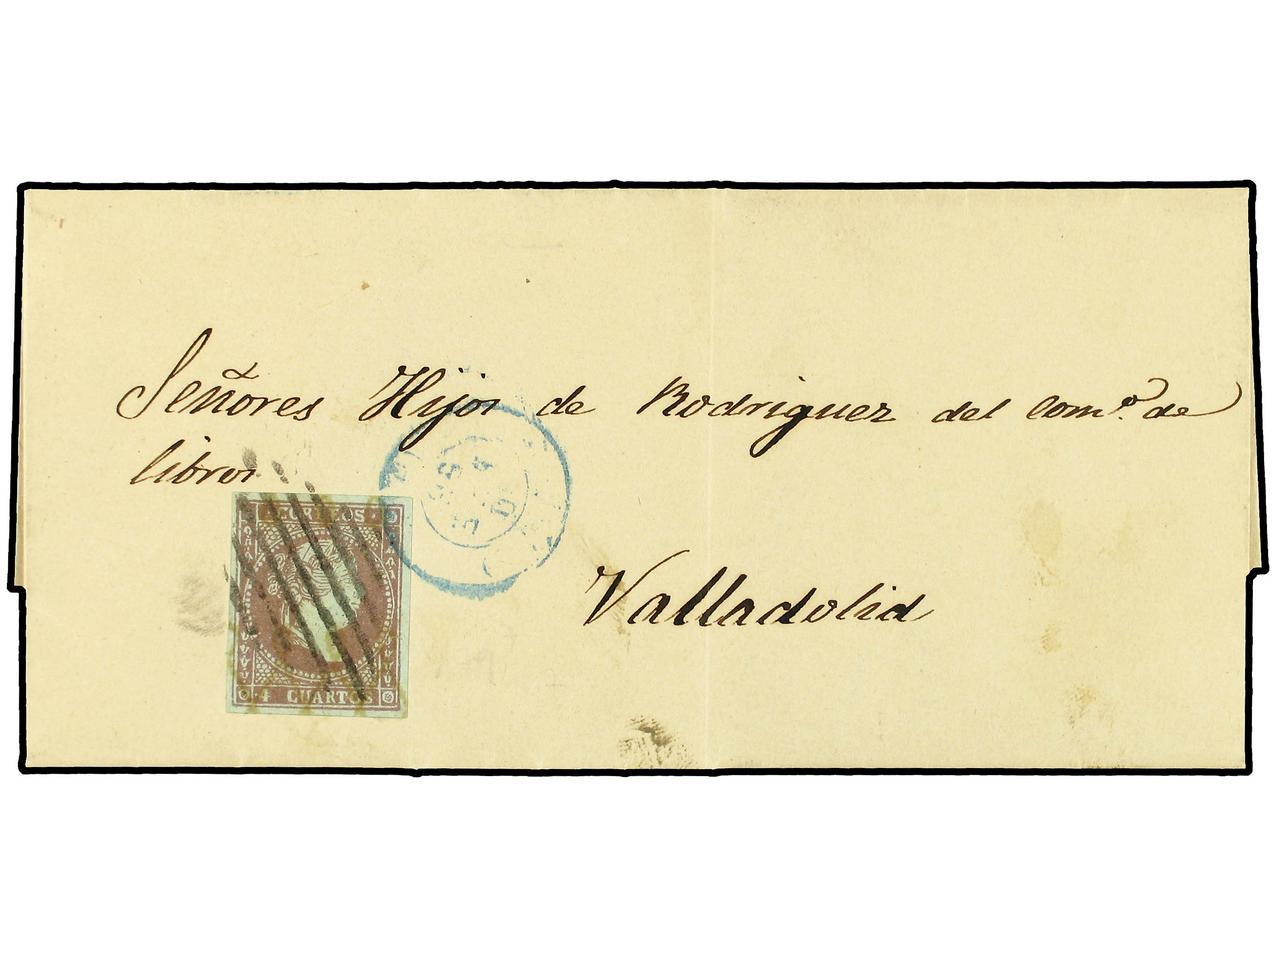 Señores Hijos de Rodriguez del Com.º de
libros
CORREOS
4 CUARTOS
Valladolid